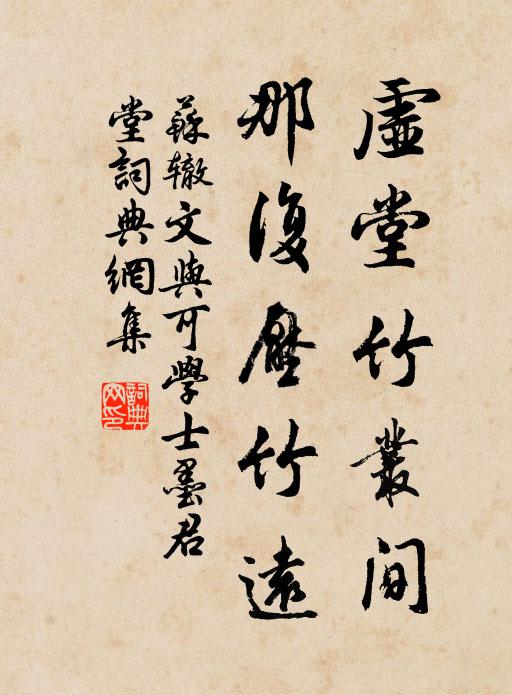 虛堂竹叢間
那復壓竹遠
蘇轍文與可學士墨君
堂詞典網集
詞典
网印